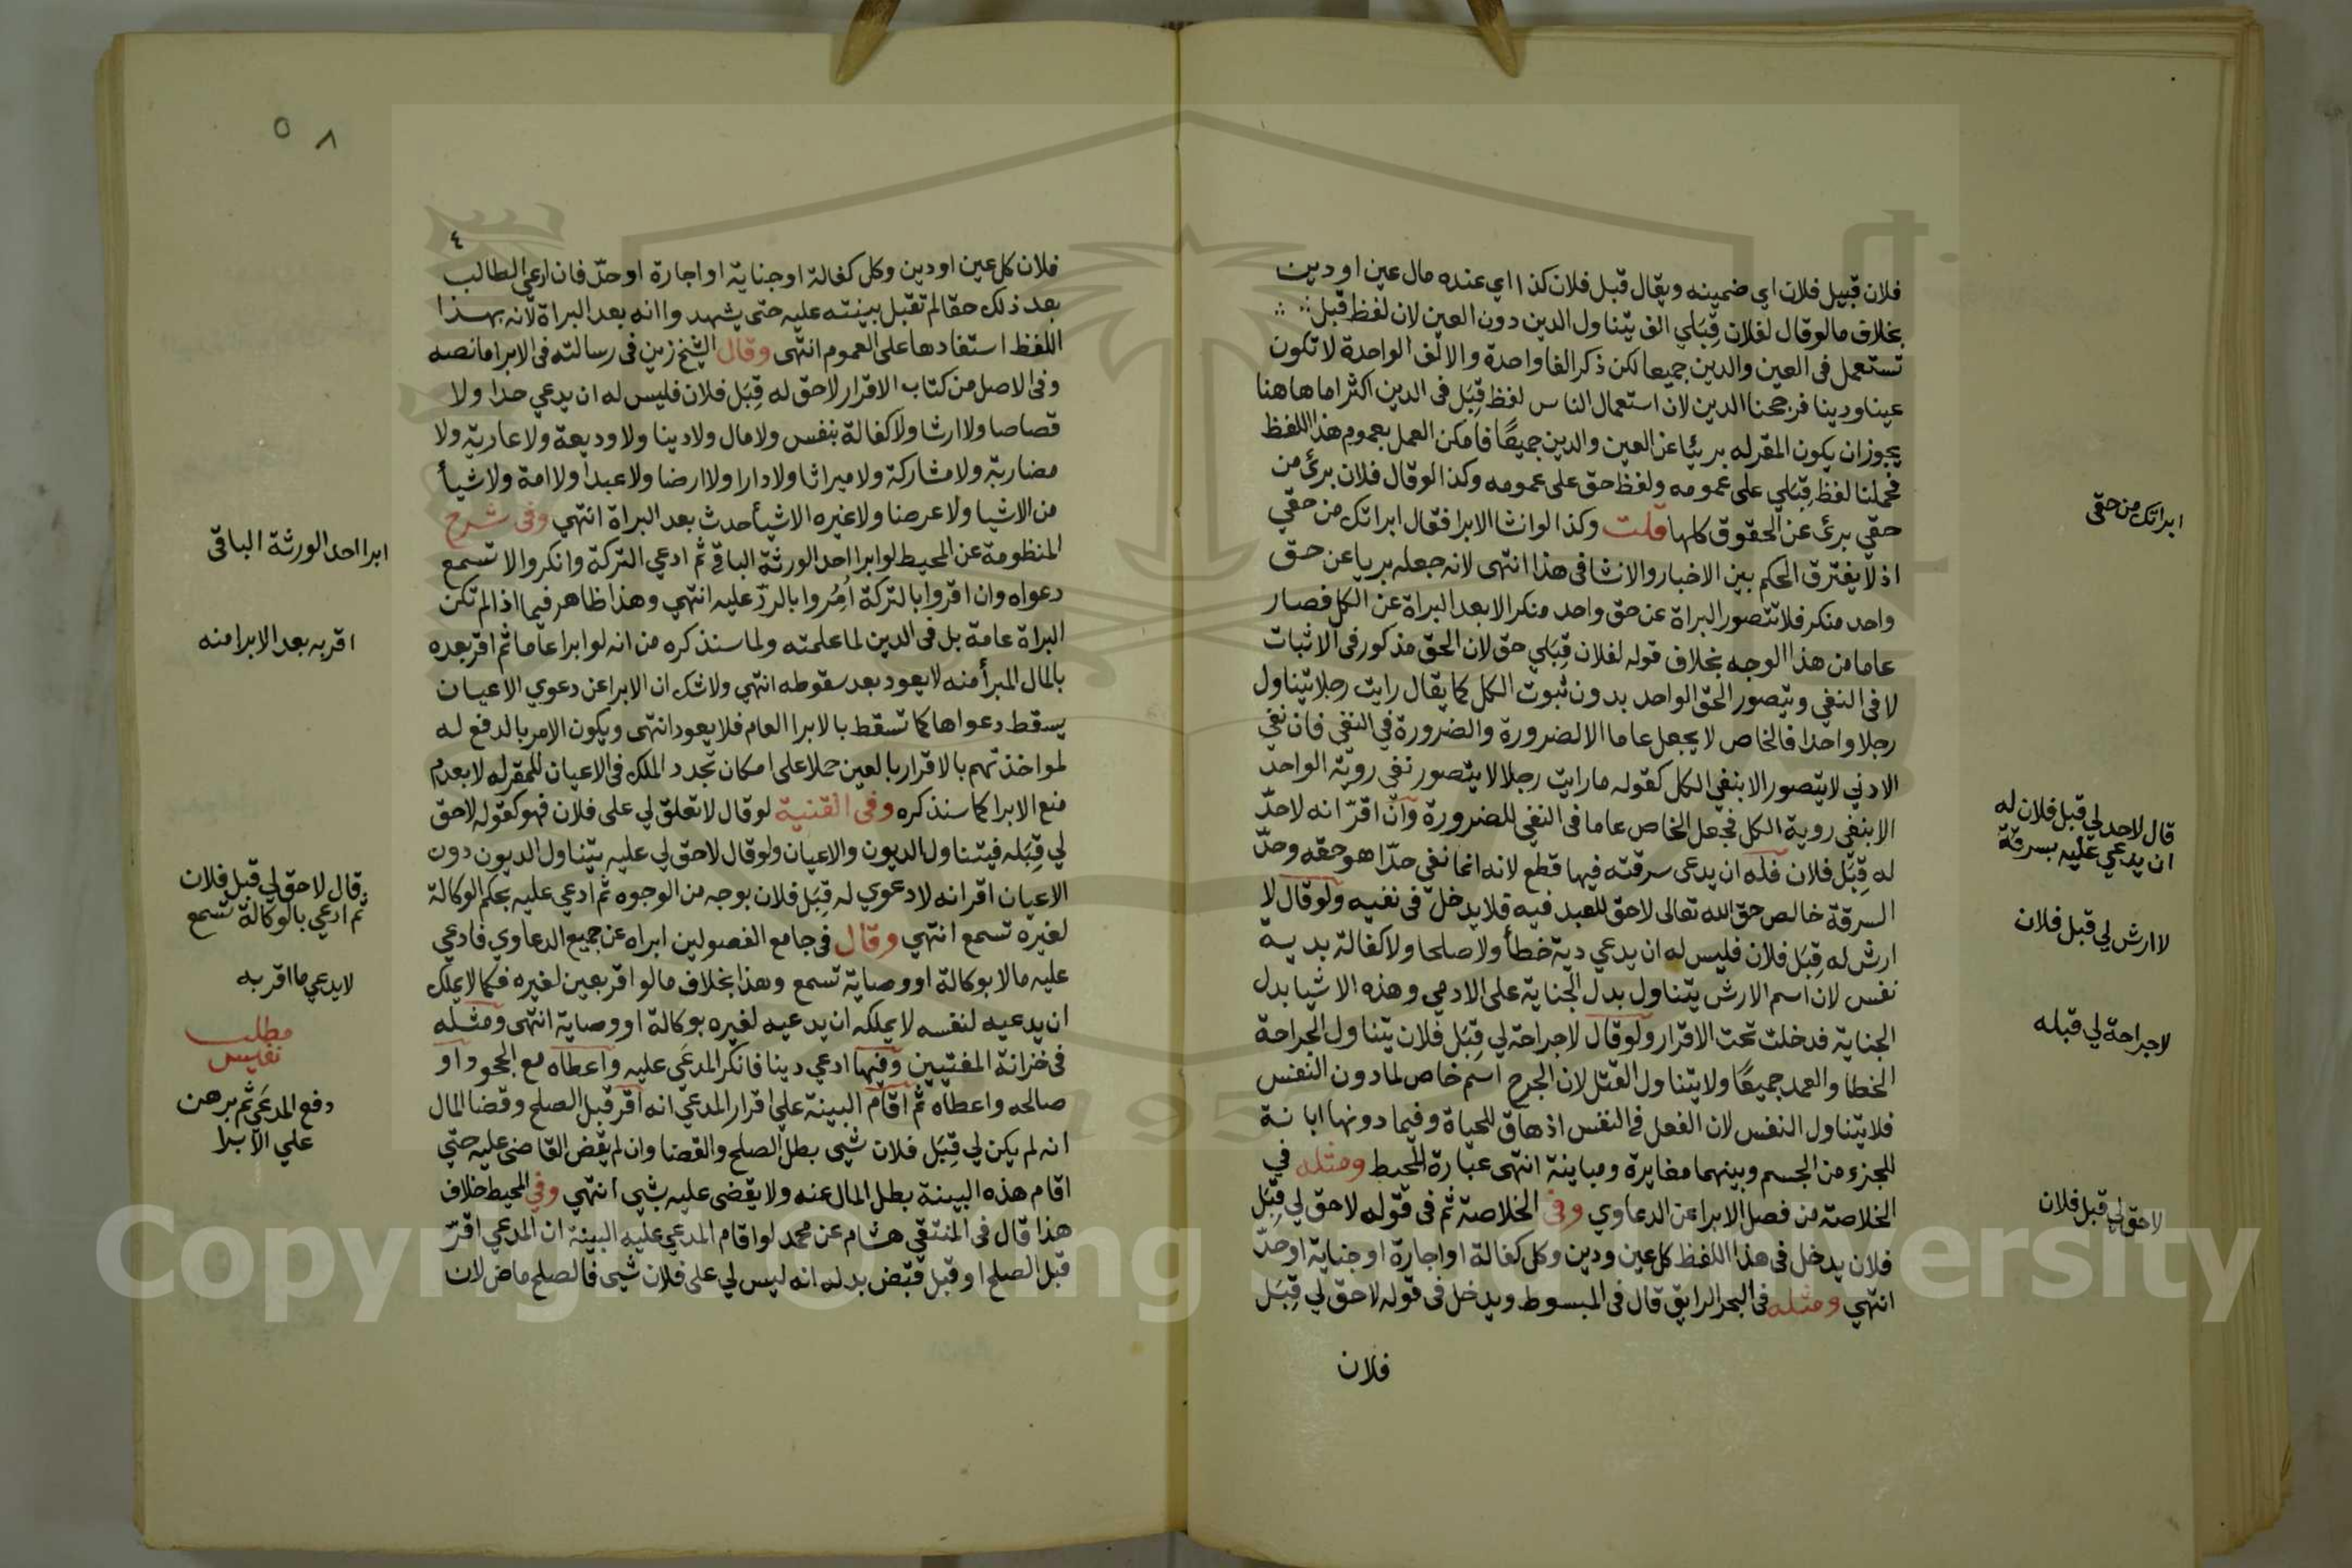 فلان قبيل فلان اي ضمينه ويقال قبل فلان كذا اي عنده مال عين او دين
بخلاف ما لو قال لفلان قِبَلي الف يتناول الدين دون العين لان لفظ قبل
تستعمل فى العين والدين جميعا لكن ذكر الفا واحدة والالف الواحدة لا تكون
عينا ودينا فرجحنا الدين لان استعمال الناس لفظ قِبَل فى الدين اكثر اما هاهنا
يجوز ان يكون المقر له بريئا عن العين والدين جميعًا فامكن العمل بعموم هذا اللفظ
فحملنا لفظ قِبَلي على عمومه ولفظ حق على عمومه وكذا لو قال فلان برئ من
حقي برئ عن الحقوق كلها قلت وكذا لو انشا الابرا فقال ابراتك من حقي
اذ لا يفترق الحكم بين الاخبار والانشا فى هذا انتهى لانه جعله بريا عن حق
واحد منكر فلا تتصور البراة عن حق واحد منكر الا بعد البراة عن الكل فصار
عاما من هذا الوجه بخلاف قوله لفلان قِبَلي حق لان الحق مذكور فى الاثبات
لا فى النفي ويتصور الحق الواحد بدون ثبوت الكل كما يقال رايت رجلا يتناول
رجلا واحدا فالخاص لا يجعل عاما الا لضرورة والضرورة في النفي فان نفي
الادني لا يتصور الا بنفي الكل كقوله ما رايت رجلا لا يتصور نفي روية الواحد
الا بنفي روية الكل فجعل الخاص عاما فى النفي للضرورة وان اقرّ انه لا حدّ
له قِبَل فلان فله ان يدعى سرقته فيها قطع لانه انما نفي حدّا هو حقه وحدّ
السرقة خالص حق الله تعالى لا حق للعبد فيه فلا يدخل فى نفيه ولو قال لا
ارش له قِبَل فلان فليس له ان يدعي دية خطأ ولا صلحا ولا كفالة بدية
نفس لان اسم الارش يتناول بدل الجناية على الادمي وهذه الاشيا بدل
الجناية فدخلت تحت الاقرار ولو قال لا جراحة لي قِبَل فلان يتناول الجراحة
الخطا والعمد جميعًا ولا يتناول القتل لان الجرح اسم خاص لما دون النفس
فلا يتناول النفس لان الفعل في النفس اذهاق للحياة وفيما دونها ابانة
للجزء من الجسم وبينهما مغايرة ومباينة انتهى عبارة المحيط ومثله في
الخلاصة من فصل الابرا عن الدعاوي وفى الخلاصة ثم فى قوله لا حق لي قِبَل
فلان يدخل فى هذا اللفظ كل عين ودين وكل كفالة او اجارة او جناية او حدّ
انتهي ومثله فى البحر الرايق قال فى المبسوط ويدخل فى قوله لا حق لي قِبَل
فلان
ابراتك من حقى
قال لا حد لي قبل فلان له
ان يدعي عليه بسرقة
لا ارش لي قبل فلان
لا جراحة لي قبله
لا حق لي قبل فلان
٥٨
٤
فلان كل عين او دين وكل كفالة او جناية او اجارة او حدّ فان ادعى الطالب
بعد ذلك حقا لم تقبل بينته عليه حتى يشهدوا انه بعد البراة لانه بهذا
اللفظ استفادها على العموم انتهى وقال الشيخ زين فى رسالته فى الابرا ما نصه
وفى الاصل من كتاب الاقرار لا حق له قِبَل فلان فليس له ان يدعي حدا ولا
قصاصا ولا ارشا ولا كفالة بنفس ولا مال ولا دينا ولا وديعة ولا عارية ولا
مضاربة ولا مشاركة ولا ميراثا ولا دارا ولا ارضا ولا عبدا ولا امة ولا شيأ
من الاشيا ولا عرضا ولا غيره الا شيأ حدث بعد البراة انتهي وفى شرح
المنظومة عن المحيط لو ابرا احد الورثة الباقي ثم ادعي التركة وانكروا لا تسمع
دعواه وان اقروا بالتركة اُمِرُوا بالردّ عليه انتهي وهذا ظاهر فيما اذا لم تكن
البراة عامة بل فى الدين لما علمته ولما سنذكره من انه لو ابرا عاما ثم اقر بعده
بالمال المبرأ منه لا يعود بعد سقوطه انتهي ولا شك ان الابرا عن دعوي الاعيان
يسقط دعواها كما تسقط بالابرا العام فلا يعود انتهى ويكون الامر بالدفع له
لمواخذتهم بالاقرار بالعين حملا على امكان تجدد الملك فى الاعيان للمقر له لا بعدم
منع الابرا كما سنذكره وفى القنية لو قال لا تعلق لي على فلان فهو كقوله لا حق
لي قِبَله فيتناول الديون والاعيان ولو قال لا حق لي عليه يتناول الديون دون
الاعيان اقر انه لا دعوي له قِبَل فلان بوجه من الوجوه ثم ادعي عليه بحكم الوكالة
لغيره تسمع انتهي وقال فى جامع الفصولين ابراه عن جميع الدعاوي فادعي
عليه مالا بوكالة او وصاية تسمع وهذا بخلاف ما لو اقر بعين لغيره فكما لا يملك
ان يدعيه لنفسه لا يملك ان يدعيه لغيره بوكالة او وصاية انتهى ومثله
فى خزانة المفتيين وفيها ادعي دينا فانكر المدعَى عليه واعطاه مع الجحود او
صالحه واعطاه ثم اقام البينة على اقرار المدعي انه اقر قبل الصلح وقضا المال
انه لم يكن لي قِبَل فلان شي بطل الصلح والقضا وان لم يقض القاضى عليه حتي
اقام هذه البينة بطل المال عنه ولا يقضى عليه بشي انتهي وفي المحيط خلاف
هذا قال فى المنتقي هشام عن محمد لو اقام المدعي عليه البينة ان المدعي اقرّ
قبل الصلح او قبل قبض بدله انه ليس لي على فلان شي فالصلح ماض لان
ابرا احد الورثة الباقى
اقر به بعد الابرا منه
قال لا حق لي قبل فلان
ثم ادعي بالوكالة تسمع
لا يدعي ما اقر به
مطلب
نفيس
دفع المدعَي ثم برهن
علي الابرا
1957
Copyright © King Saud University